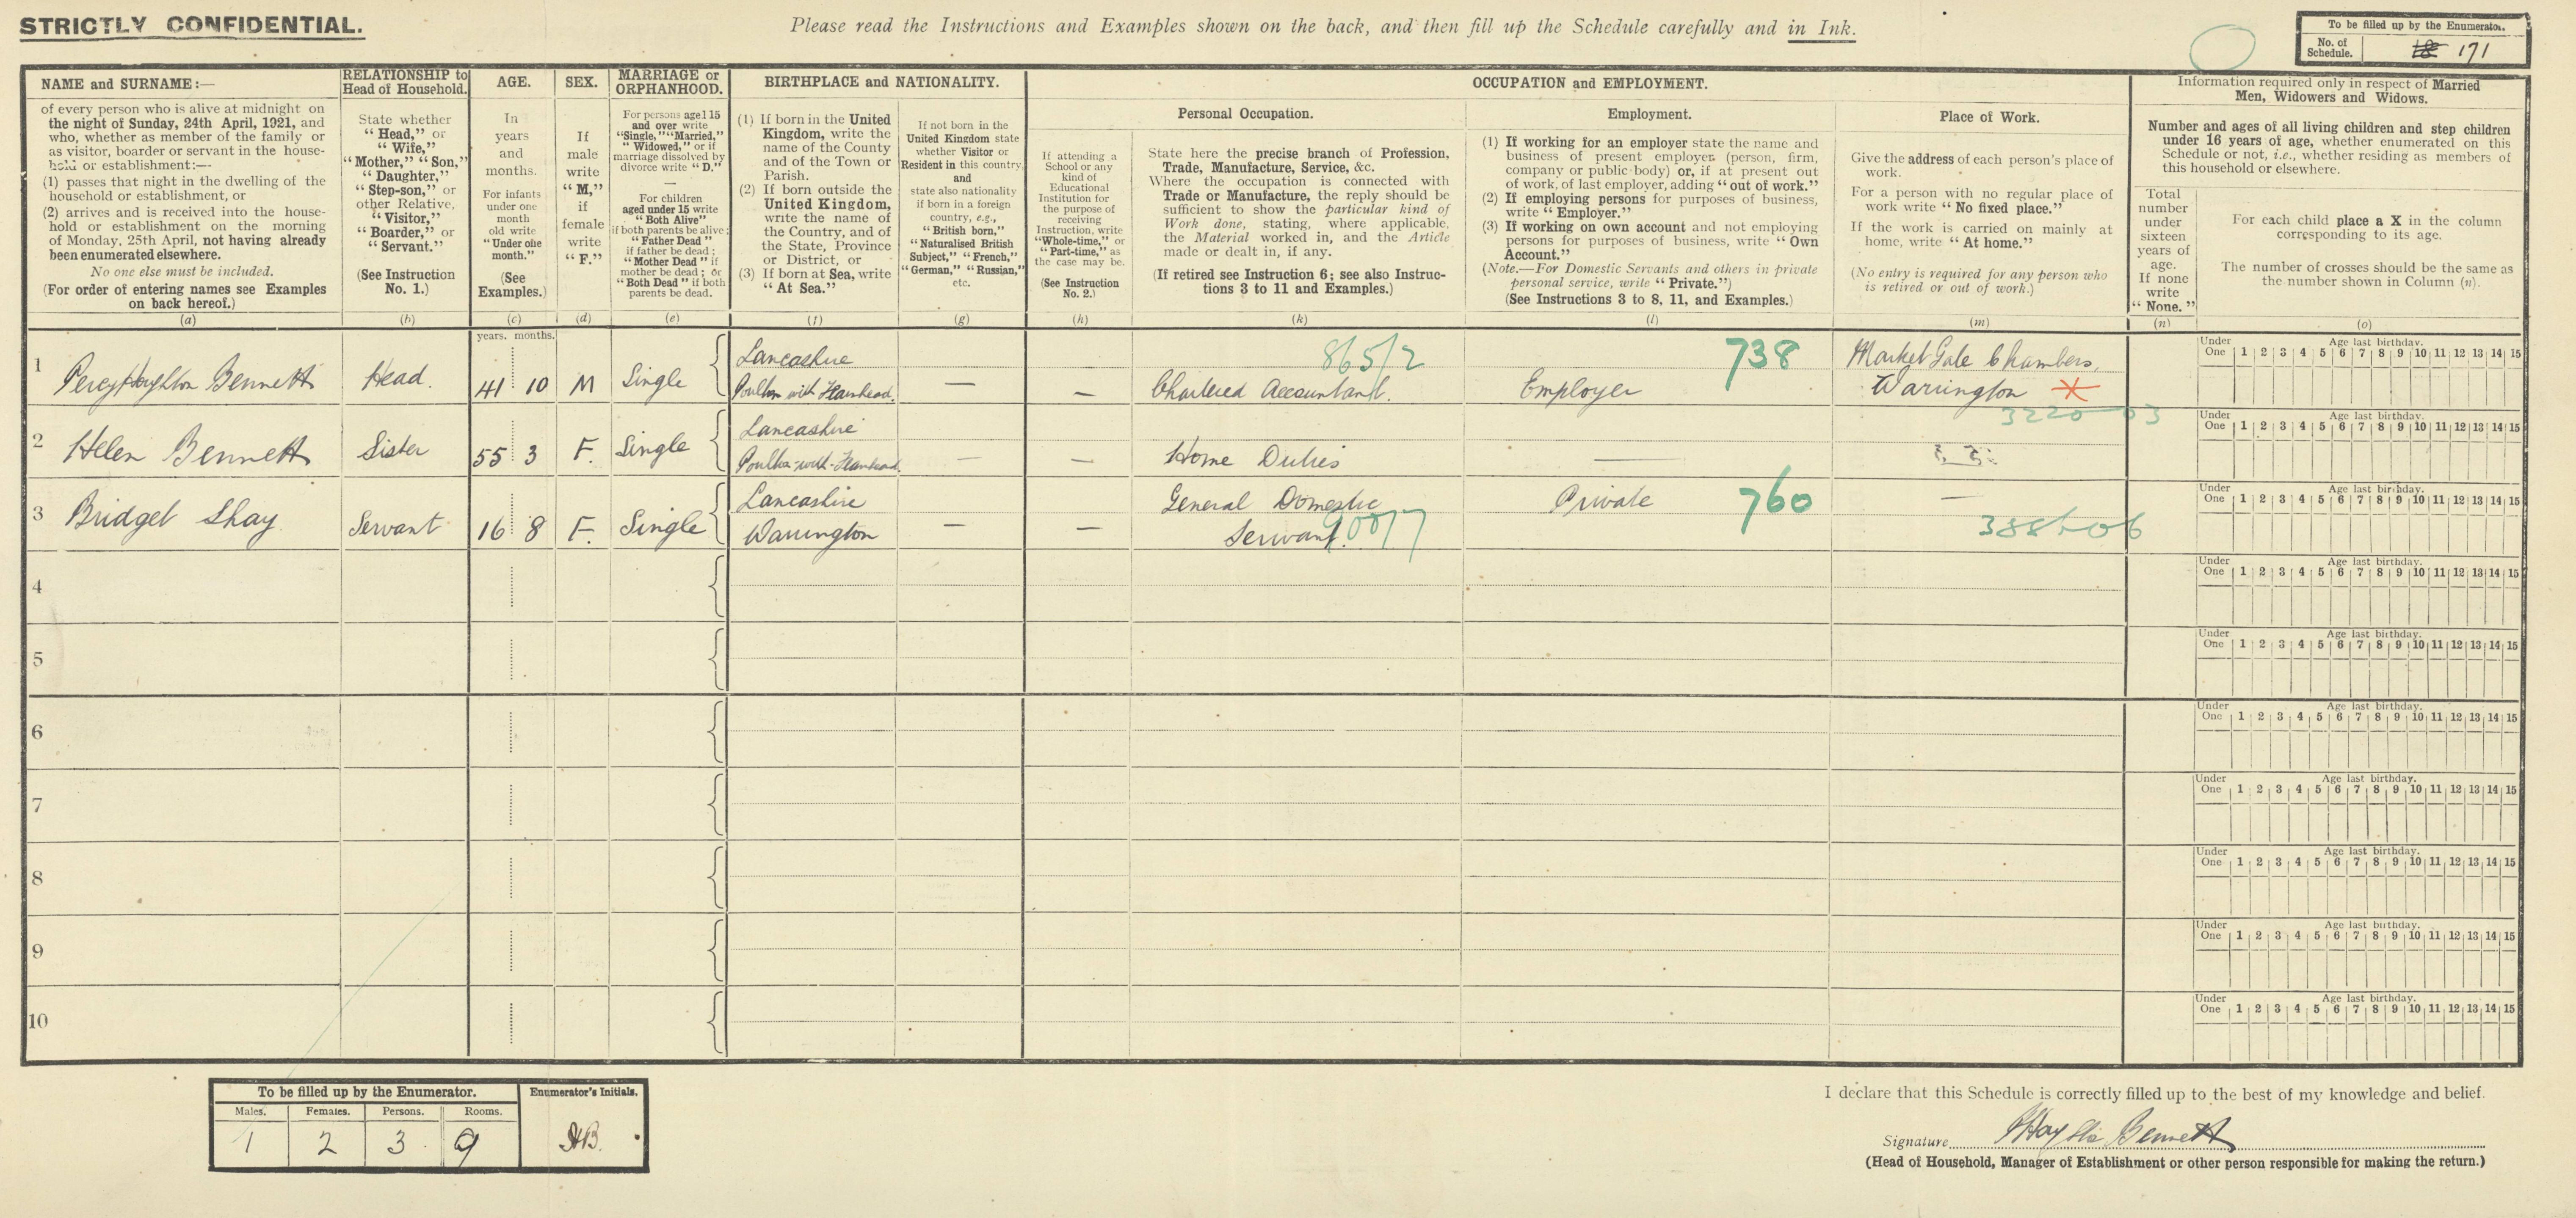 STRICTLY CONFIDENTIAL.
Please read the Instructions and Examples shown on the back, and then fill up the Schedule carefully and in Ink.
To be filled up by the Enumerator.
No. of Schedule. 18 171
NAME and SURNAME:—
of every person who is alive at midnight on
the night of Sunday, 24th April, 1921, and
who, whether as member of the family or
as visitor, boarder or servant in the house-
hold or establishment:—
(1) passes that night in the dwelling of the
household or establishment, or
(2) arrives and is received into the house-
hold or establishment on the morning
of Monday, 25th April, not having already
been enumerated elsewhere.
No one else must be included.
(For order of entering names see Examples
on back hereof.)
(a)
RELATIONSHIP to
Head of Household.
State whether
"Head," or
"Wife,"
"Mother," "Son,"
"Daughter,"
"Step-son," or
other Relative,
"Visitor,"
"Boarder," or
"Servant."
(See Instruction
No. 1.)
(b)
AGE.
In
years
and
months.
For infants
under one
month
old write
"Under one
month."
(See
Examples.)
(c)
SEX.
If
male
write
"M,"
if
female
write
"F."
(d)
MARRIAGE or
ORPHANHOOD.
For persons aged 15
and over write
"Single," "Married,"
"Widowed," or if
marriage dissolved by
divorce write "D."
—
For children
aged under 15 write
"Both Alive"
if both parents be alive;
"Father Dead"
if father be dead;
"Mother Dead" if
mother be dead; or
"Both Dead" if both
parents be dead.
(e)
BIRTHPLACE and NATIONALITY.
(1) If born in the United
Kingdom, write the
name of the County
and of the Town or
Parish.
(2) If born outside the
United Kingdom,
write the name of
the Country, and of
the State, Province
or District, or
(3) If born at Sea, write
"At Sea."
(f)
If not born in the
United Kingdom state
whether Visitor or
Resident in this country,
and
state also nationality
if born in a foreign
country, e.g.,
"British born,"
"Naturalised British
Subject," "French,"
"German," "Russian,"
etc.
(g)
OCCUPATION and EMPLOYMENT.
If attending a
School or any
kind of
Educational
Institution for
the purpose of
receiving
Instruction, write
"Whole-time," or
"Part-time," as
the case may be.
(See Instruction
No. 2.)
(h)
Personal Occupation.
State here the precise branch of Profession,
Trade, Manufacture, Service, &c.
Where the occupation is connected with
Trade or Manufacture, the reply should be
sufficient to show the particular kind of
Work done, stating, where applicable,
the Material worked in, and the Article
made or dealt in, if any.
(If retired see Instruction 6; see also Instruc-
tions 3 to 11 and Examples.)
(k)
Employment.
(1) If working for an employer state the name and
business of present employer (person, firm,
company or public body) or, if at present out
of work, of last employer, adding "out of work."
(2) If employing persons for purposes of business,
write "Employer."
(3) If working on own account and not employing
persons for purposes of business, write "Own
Account."
(Note.—For Domestic Servants and others in private
personal service, write "Private.")
(See Instructions 3 to 8, 11, and Examples.)
(l)
Place of Work.
Give the address of each person's place of
work.
For a person with no regular place of
work write "No fixed place."
If the work is carried on mainly at
home, write "At home."
(No entry is required for any person who
is retired or out of work.)
(m)
Information required only in respect of Married
Men, Widowers and Widows.
Number and ages of all living children and step children
under 16 years of age, whether enumerated on this
Schedule or not, i.e., whether residing as members of
this household or elsewhere.
Total
number
under
sixteen
years of
age.
If none
write
"None."
(n)
For each child place a X in the column
corresponding to its age.
The number of crosses should be the same as
the number shown in Column (n).
(o)
years. months.
1 Percy Houghton Bennett Head. 41 10 M Single Lancashire Poulton with Fearnhead. — — Chartered Accountant. 865/2 Employer 738 Market Gate Chambers, Warrington
Under One Age last birthday. 1 2 3 4 5 6 7 8 9 10 11 12 13 14 15
3220 03
2 Helen Bennett Sister 55 3 F. Single Lancashire Poulton-with-Fearnhead. — — Home Duties —
Under One Age last birthday. 1 2 3 4 5 6 7 8 9 10 11 12 13 14 15
3 Bridget Shay Servant 16 8 F. Single Lancashire Warrington — — General Domestic Servant. 900/7 Private 760 —
Under One Age last birthday. 1 2 3 4 5 6 7 8 9 10 11 12 13 14 15
4
Under One Age last birthday. 1 2 3 4 5 6 7 8 9 10 11 12 13 14 15
5
Under One Age last birthday. 1 2 3 4 5 6 7 8 9 10 11 12 13 14 15
6
Under One Age last birthday. 1 2 3 4 5 6 7 8 9 10 11 12 13 14 15
7
Under One Age last birthday. 1 2 3 4 5 6 7 8 9 10 11 12 13 14 15
8
Under One Age last birthday. 1 2 3 4 5 6 7 8 9 10 11 12 13 14 15
9
Under One Age last birthday. 1 2 3 4 5 6 7 8 9 10 11 12 13 14 15
10
Under One Age last birthday. 1 2 3 4 5 6 7 8 9 10 11 12 13 14 15
To be filled up by the Enumerator.
Males. Females. Persons. Rooms.
1 2 3 9
Enumerator's Initials.
I declare that this Schedule is correctly filled up to the best of my knowledge and belief.
Signature Bennett
(Head of Household, Manager of Establishment or other person responsible for making the return.)